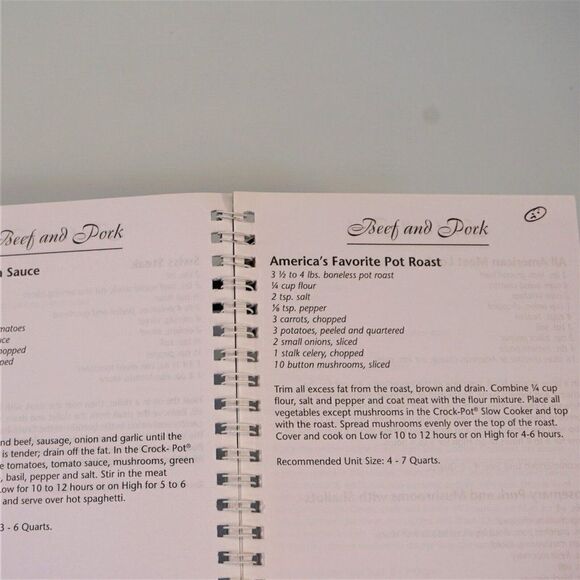 Beef and Pork
Sauce
matoes
ce
hopped
ped
nd beef, sausage, onion and garlic until the
is tender; drain off the fat. In the Crock- Pot®
e tomatoes, tomato sauce, mushrooms, green
, basil, pepper and salt. Stir in the meat
Low for 10 to 12 hours or on High for 5 to 6
and serve over hot spaghetti.
3 - 6 Quarts.
Beef and Pork
America's Favorite Pot Roast
3 ½ to 4 lbs. boneless pot roast
¼ cup flour
2 tsp. salt
⅛ tsp. pepper
3 carrots, chopped
3 potatoes, peeled and quartered
2 small onions, sliced
1 stalk celery, chopped
10 button mushrooms, sliced
Trim all excess fat from the roast, brown and drain. Combine ¼ cup
flour, salt and pepper and coat meat with the flour mixture. Place all
vegetables except mushrooms in the Crock-Pot® Slow Cooker and top
with the roast. Spread mushrooms evenly over the top of the roast.
Cover and cook on Low for 10 to 12 hours or on High for 4-6 hours.
Recommended Unit Size: 4 - 7 Quarts.